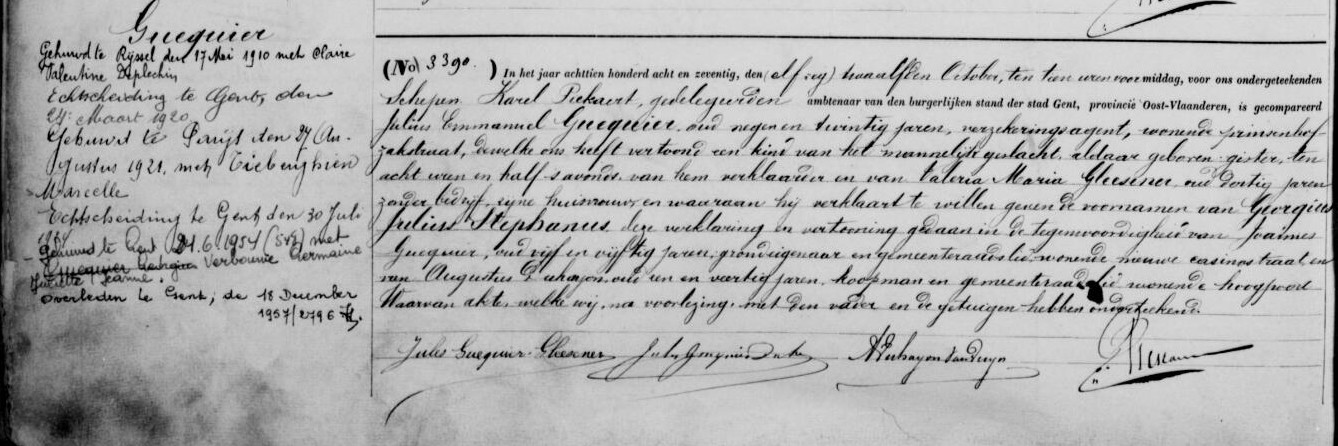 Guequier
Gehuwd te Rijssel den 17 Mei 1910 met Claire
Valentine Deplechin
Echtscheiding te Gent, den
24: Maart 1920
Gehuwd te Parijs den 27 Au-
gustus 1921, met Tieberghien
Marcelle
Echtscheiding te Gent den 30 Juli
Gehuwd te Gent 24.6.1954 (513) met
Guequier Georgius Verbouwe Germaine
Juliette Jeanne.
Overleden te Gent, de 18 December
1957/2796
(No 3390.) In het jaar achttien honderd acht en zeventig, den (elf) twaalfden October, ten tien uren voor middag, voor ons ondergeteekenden
Schepen Karel Piekaert, gedelegeerden ambtenaar van den burgerlijken stand der stad Gent, provincie Oost-Vlaanderen, is gecompareerd
Julius Emmanuel Guequier, oud negen en twintig jaren, verzekeringsagent, wonende prinsenhof-
zakstraat, dewelke ons heeft vertoond een kind van het mannelijk geslacht, aldaar geboren gister, ten
acht uren en half s'avonds, van hem verklaarder en van Valeria Maria Glesener, oud dertig jaren
zonder bedrijf, zijne huisvrouw, en waaraan hij verklaart te willen geven de voornamen van Georgius
Julius Stephanus, deze verklaring en vertooning gedaan in de tegenwoordigheid van Joannes
Guequier, oud vijf en vijftig jaren, grondeigenaar en gemeenteraadslid, wonende nieuwe casinostraat en
van Augustus D'uhayon, oud een en veertig jaren, koopman en gemeenteraadslid wonende hoogpoort
Waarvan akte, welke wij, na voorlezing, met den vader en de getuigen hebben onderteekend.
Jules Guequier-Glesener